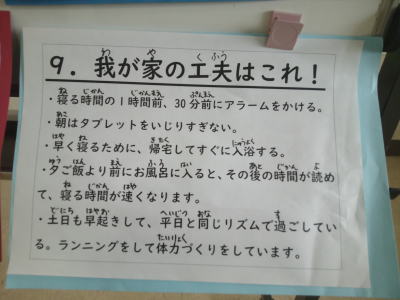 9．我が家の工夫はこれ！
・寝る時間の1時間前、30分前にアラームをかける。
・朝はタブレットをいじりすぎない。
・早く寝るために、帰宅してすぐに入浴する。
・夕ご飯より前にお風呂に入ると、その後の時間が読め
て、寝る時間が速くなります。
・土日も早起きして、平日と同じリズムで過ごしてい
る。ランニングをして体力づくりをしています。